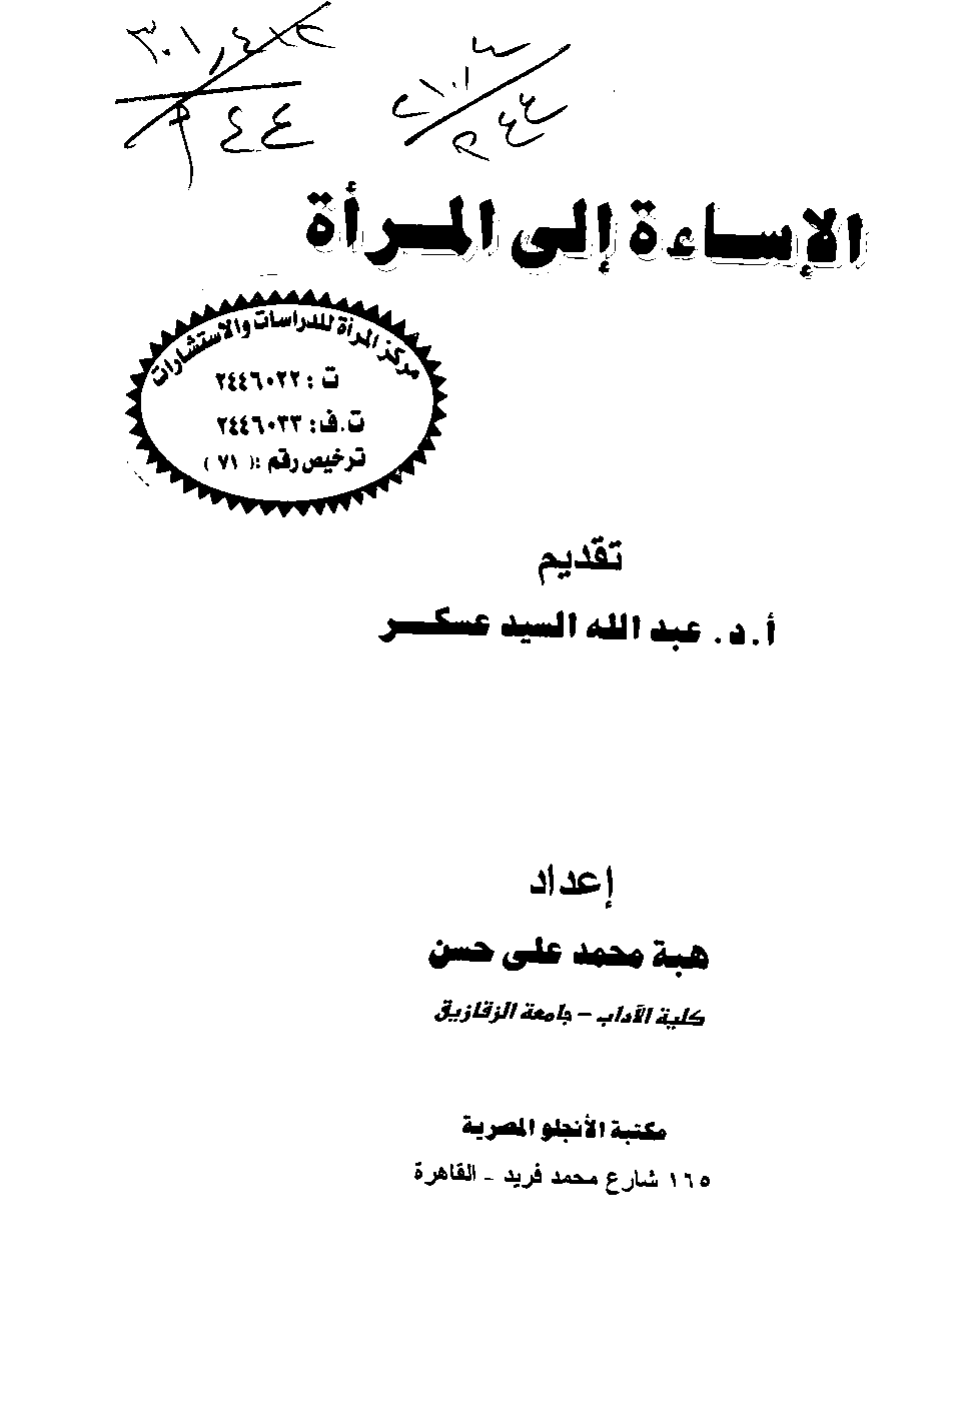 ٣٠١,٤١٢
٢٤٤
٢١٠١٣
٢٤٤
الإساءة إلى المرأة
مركز المرأة للدراسات والاستشارات
ت : ٢٤٤٦٠٢٢
ت.ف: ٢٤٤٦٠٣٣
ترخيص رقم :( ٧١ )
تقديم
أ.د. عبد الله السيد عسكر
إعداد
هبة محمد على حسن
كلية الآداب – جامعة الزقازيق
مكتبة الأنجلو المصرية
١٦٥ شارع محمد فريد - القاهرة